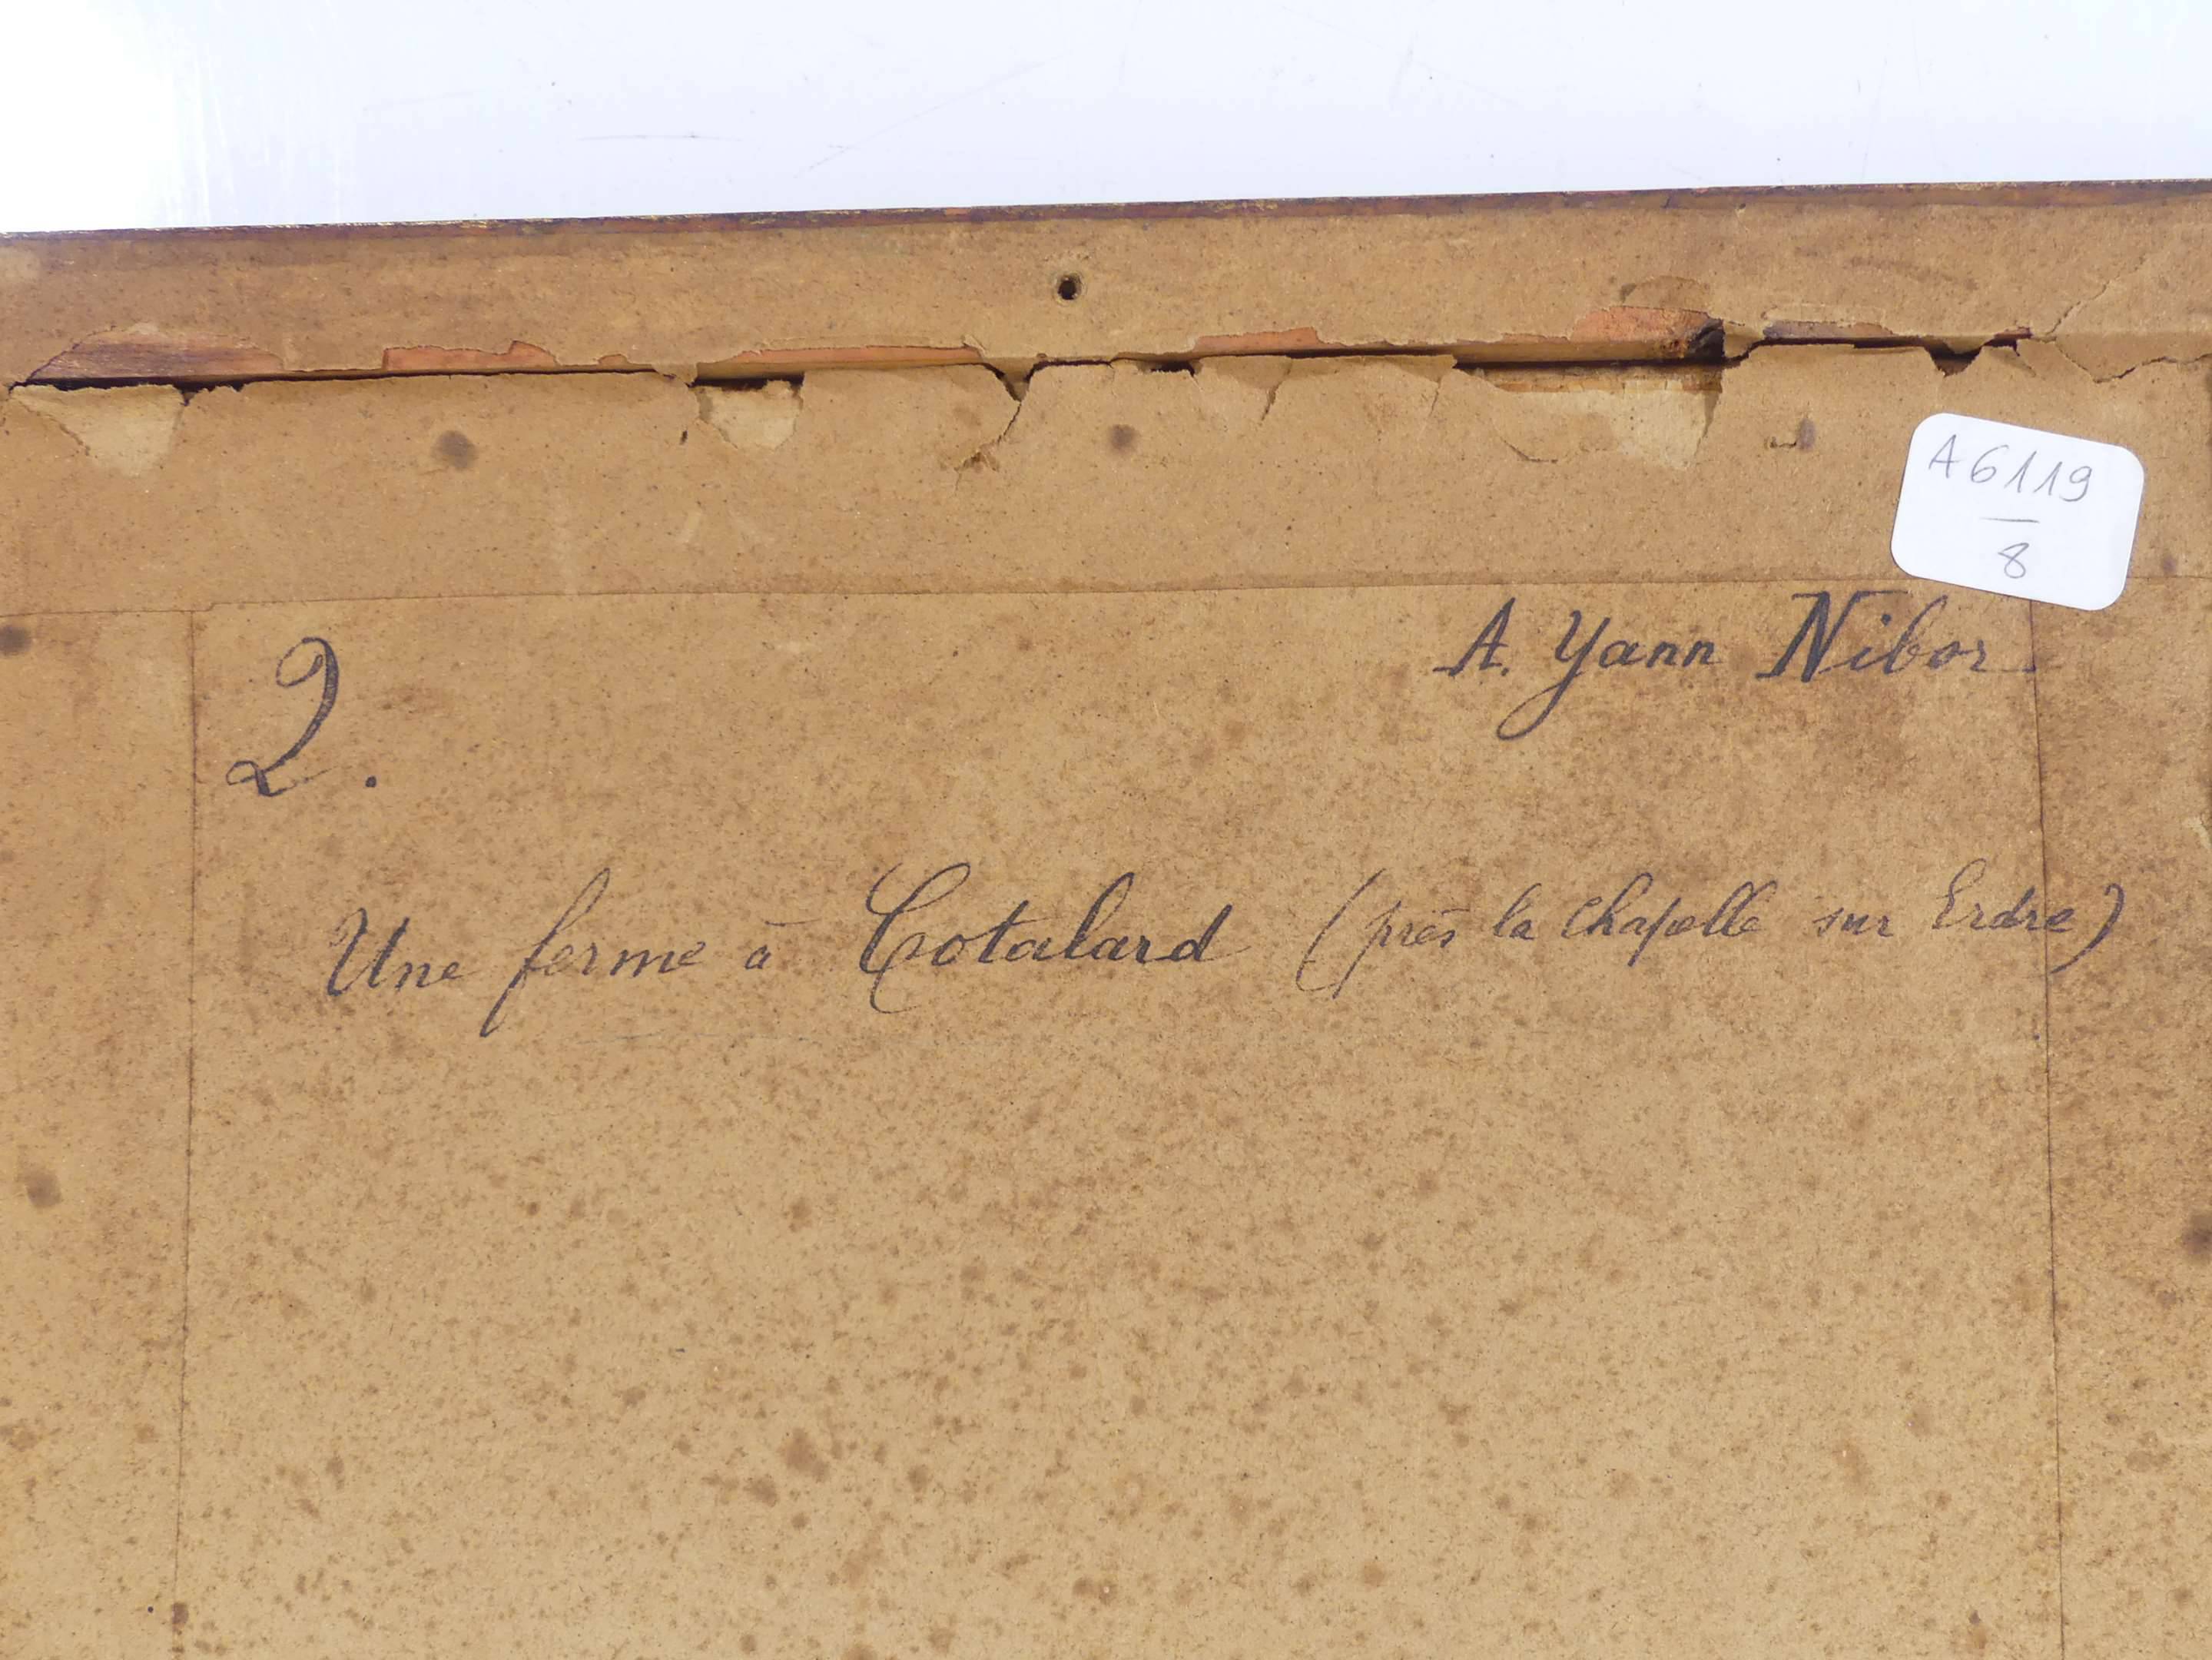 A6119
8
A. Yann Nibor.
2.
Une ferme à Cotalard (près la Chapelle sur Erdre)